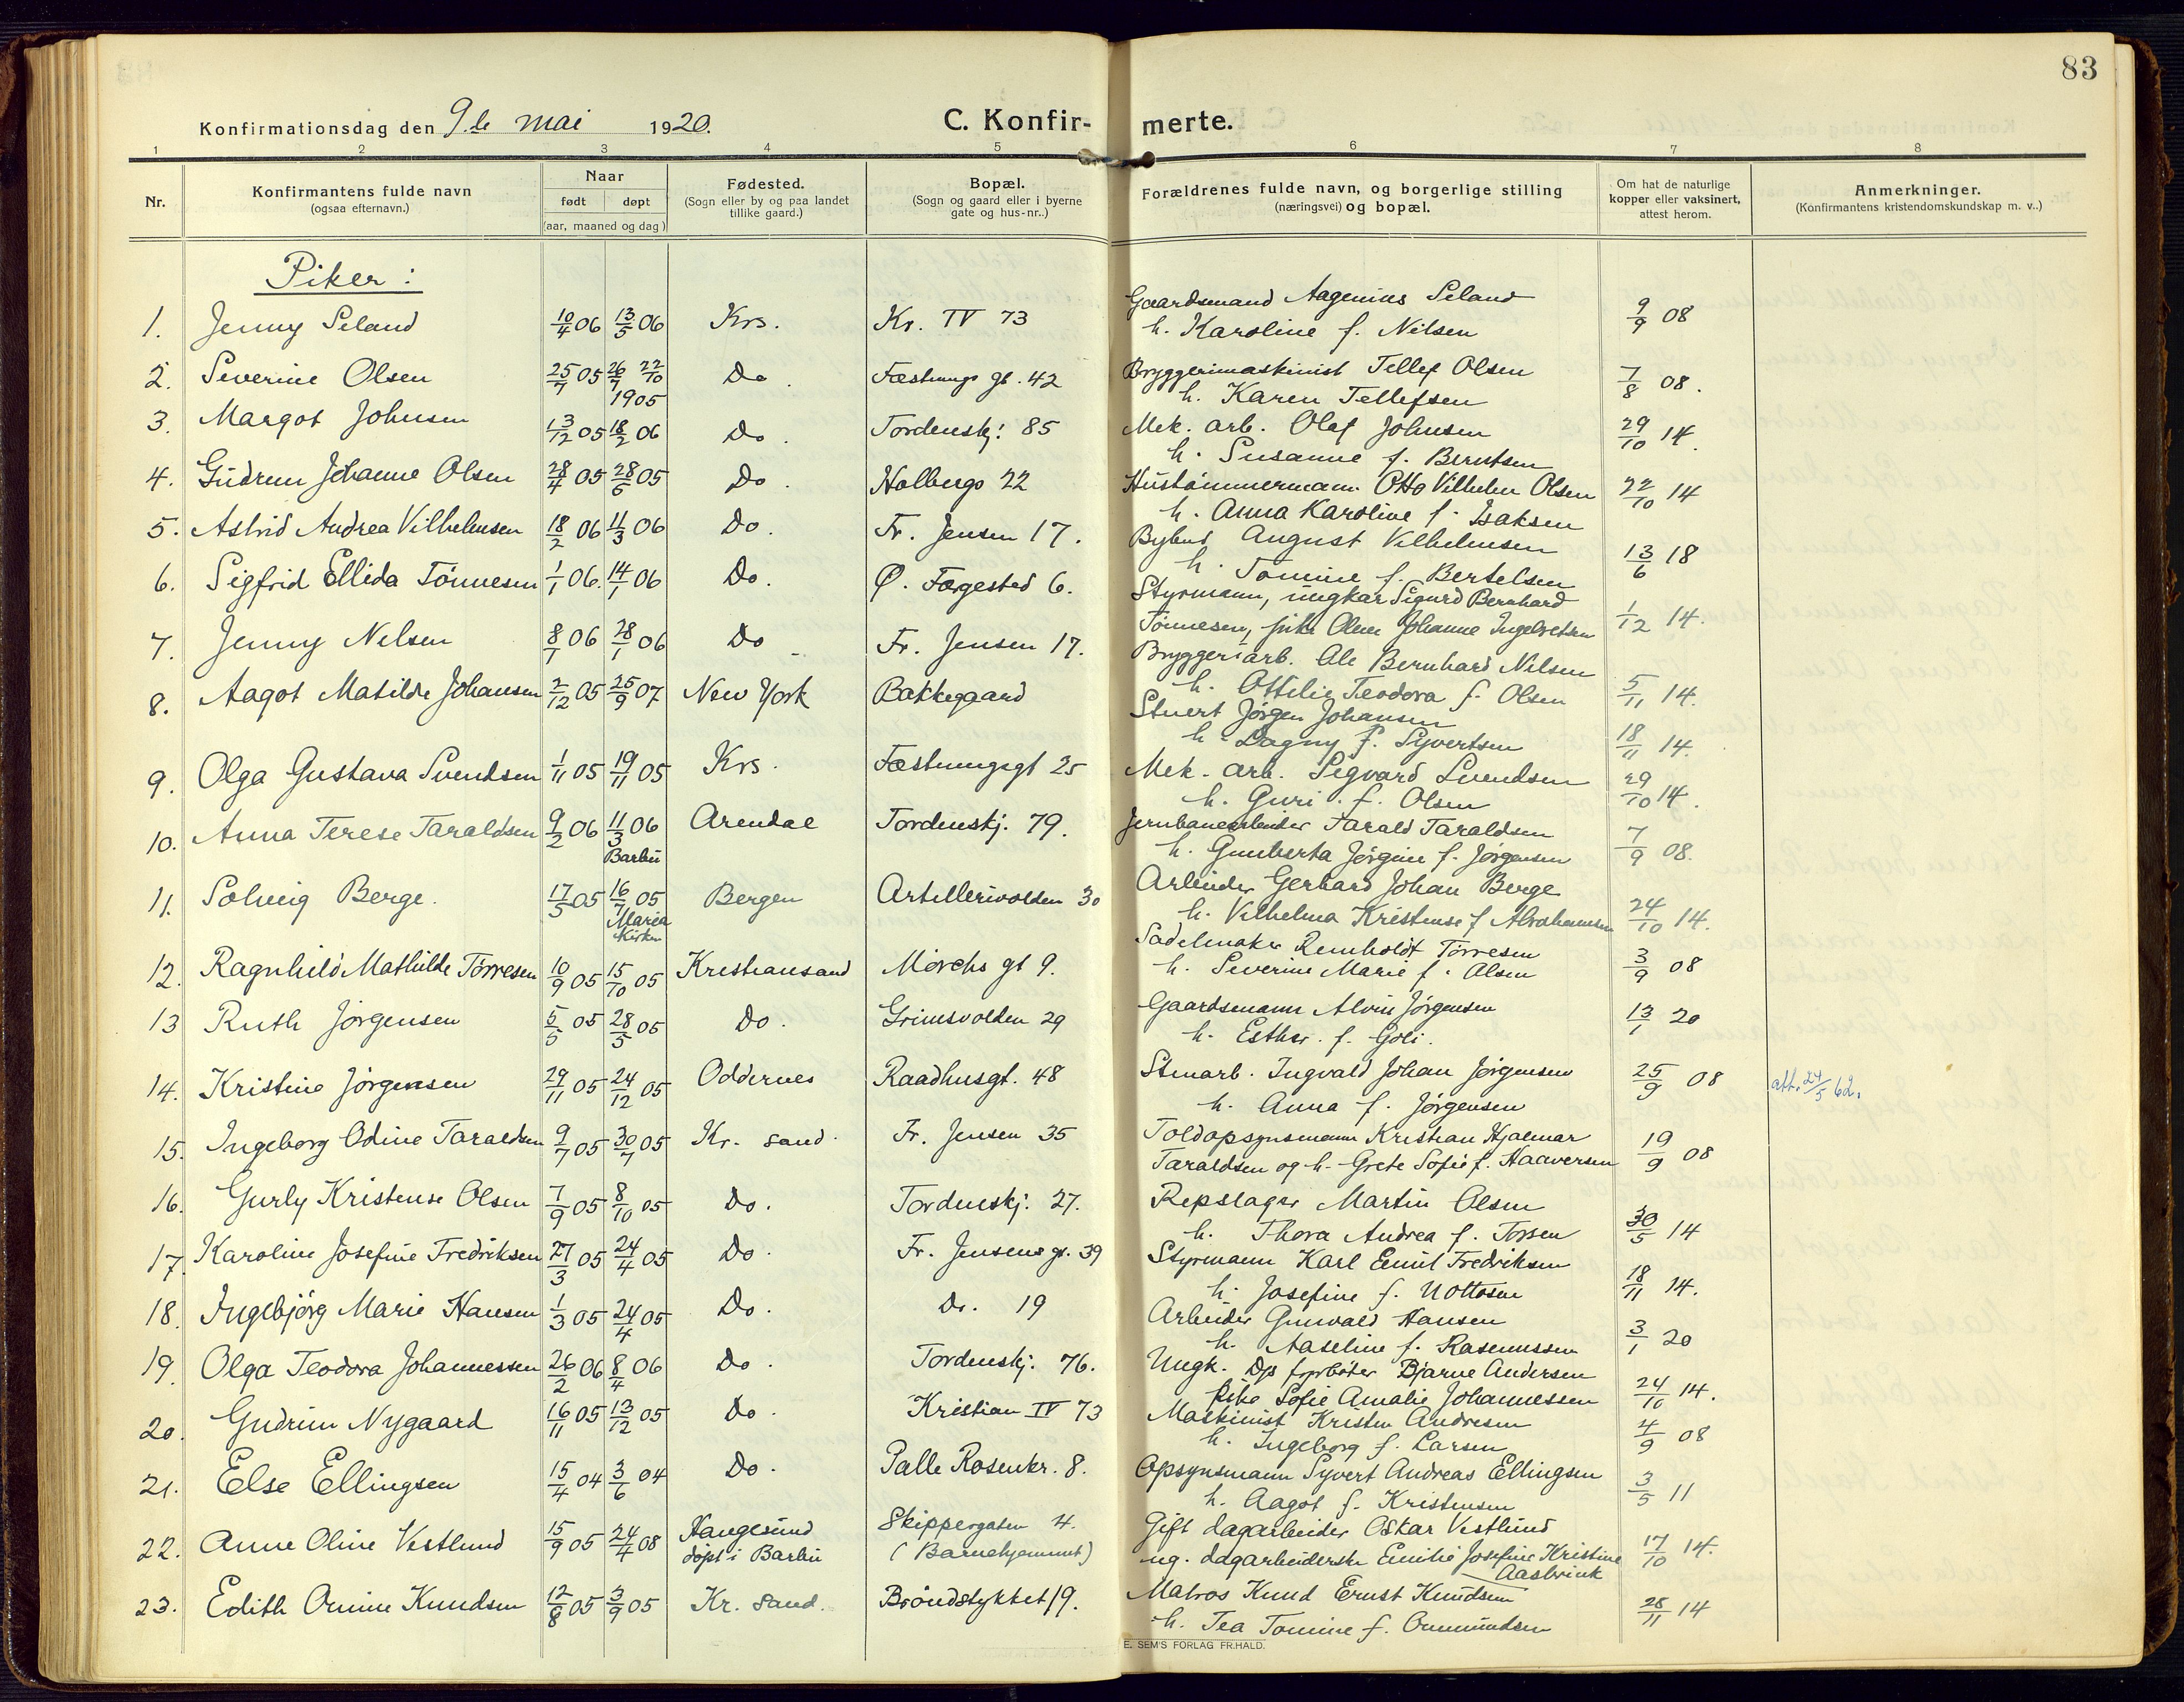 83
Konfirmationsdag den 9.de mai 1920.
C. Konfir- merte.
1 2 3 4 5 6 7 8
Nr.
Konfirmantens fulde navn
(ogsaa efternavn.)
Naar
født døpt
(aar, maaned og dag)
Fødested.
(Sogn eller by og paa landet
tillike gaard.)
Bopæl.
(Sogn og gaard eller i byerne
gate og hus-nr..)
Forældrenes fulde navn, og borgerlige stilling
(næringsvei) og bopæl.
Om hat de naturlige
kopper eller vaksinert,
attest herom.
Anmerkninger.
(Konfirmantens kristendomskundskap m. v..)
Piker:
1. Jenny Seland 10/4 06 13/5 06 Krs. Kr. IV 73 Gaardsmand Aagenius Seland 9/9 08
h. Karoline f. Nilsen
2. Severine Olsen 25/7 05 26/7 22/10 1905 Do. Fæstnings gt. 42 Bryggerimaskinist Tellef Olsen 7/8 08.
h. Karen Tellefsen
3. Margot Johnsen 13/12 05 18/2 06 Do. Tordenskj. 85 Mek. arb. Olaf Johnsen 29/10 14.
h. Susanne f. Berntsen
4. Gudrun Johanne Olsen 28/4 05 28/6 05 Do. Holbergs 22 Hustømmermann Otto Vilhelm Olsen 22/10 14
h. Anna Karoline f. Isaksen
5. Astrid Andrea Vilhelmsen 18/2 06 11/3 06 Do. Fr. Jensen 17. Bybud August Vilhelmsen 13/6 18
h. Tomine f. Bertelsen
6. Sigfrid Ellida Tønnesen 1/1 06. 14/1 06 Do. Ø. Færgested 6. Styrmann, ungkar Sigurd Bernhard 1/12 14.
Tønnesen, pike Johanne Ingebretsen
7. Jenny Nilsen 8/1 06 28/1 06 Do Fr. Jensen 17. Bryggeriarb. Ole Bernhard Nilsen 5/11 14.
h. Ottilie Teodora f. Olsen
8. Aagot Matilde Johansen 2/12 05 25/9 07 New York Bakkegaard Stuert Jørgen Johansen 18/11 14.
h. Dagny f. Syvertsen
9. Olga Gustava Svendsen 1/11 05 19/11 05 Krs. Fæstningsgt 25 Mek. arb. Sigvard Svendsen 29/10 14.
h. Guri. f. Olsen
10. Anna Terese Taraldsen 9/2 06 11/3 06 Barbu Arendal Tordenskj. 79. Jernbanearbeider Tarald Taraldsen 7/9 08.
h. Gunberta Jørgine f. Jørgensen
11. Solveig Berge. 17/5 05 16/7 05 Maria Kirken Bergen Artillerivolden 30 Arbeider Gerhard Johan Berge 24/10 14.
h. Vilhelma Kristense f Abrahamsen
12. Ragnhild Mathilde Tørresen 10/9 05 15/10 05 Kristiansand Mørchs gt 9. Sadelmaker Reinholdt Tørresen 3/9 08
h. Severine Marie f. Olsen
13 Ruth Jørgensen 5/5 05 28/5 05 Do. Grimsvolden 29 Gaardsmann Alvin Jørgensen 13/1 20
h. Esther. f. Goli.
14. Kristine Jørgensen 29/11 05 24/12 05 Oddernes Raadhusgt. 48 Stenarb. Ingvald Johan Jørgensen 25/9 08 att. 24/5 62.
h. Anna f. Jørgensen
15. Ingeborg Odine Taraldsen 9/7 05 30/7 05 Kr. sand. Fr. Jensen 35 Toldopsynsmann Kristian Hjalmar 19/9 08
Taraldsen og h. Grete Sofie f. Haaversen
16. Gurly Kristense Olsen 7/9 05 8/10 05 Do. Tordenskj. 27. Repslager Martin Olsen 30/5 14
h. Thora Andrea f. Torsen
17. Karoline Josefine Fredriksen 27/3 05 24/4 05 Do. Fr. Jensens gt. 39 Styrmann Karl Emil Fredriksen 18/11 14.
h. Josefine f. Nottosen
18. Ingebjørg Marie Hansen 1/3 05 24/4 05 Do. Do. 19 Arbeider Gunvald Hansen 3/1 20
h. Aaseline f. Rasmussen
19. Olga Teodora Johannessen 26/2 06 8/4 06 Do. Tordenskj. 76. Ungk. Bjarne Andersen 24/10 14.
Pike Sofie Amalie Johannessen
20. Gudrun Nygaard 16/11 05 13/12 05 Do. Kristian IV 73 Maskinist Kristen Andresen 4/9 08
h. Ingeborg f. Larsen
21. Else Ellingsen 15/4 04 3/6 04 Do. Palle Rosenkr. 8. Opsynsmann Syvert Andreas Ellingsen 3/5 11
h. Aagot f. Kristensen
22. Anne Oline Vestlund 15/9 05 24/4 08 Haugesund Skippergaten 4. Gift dagarbeider Oskar Vestlund 17/10 14.
døpt i Barbu (Barnehjemmet) ug. dagarbeiderske Emilie Josefine Kristine
Aasbrink
23. Edith Omine Knudsen 12/8 05 3/9 05 Kr. sand. Brøndstykket 19. Matros Knud Ernst Knudsen 28/11 14
h. Tea Tomine f. Ommundsen
E. SEM'S FORLAG FR.HALD.